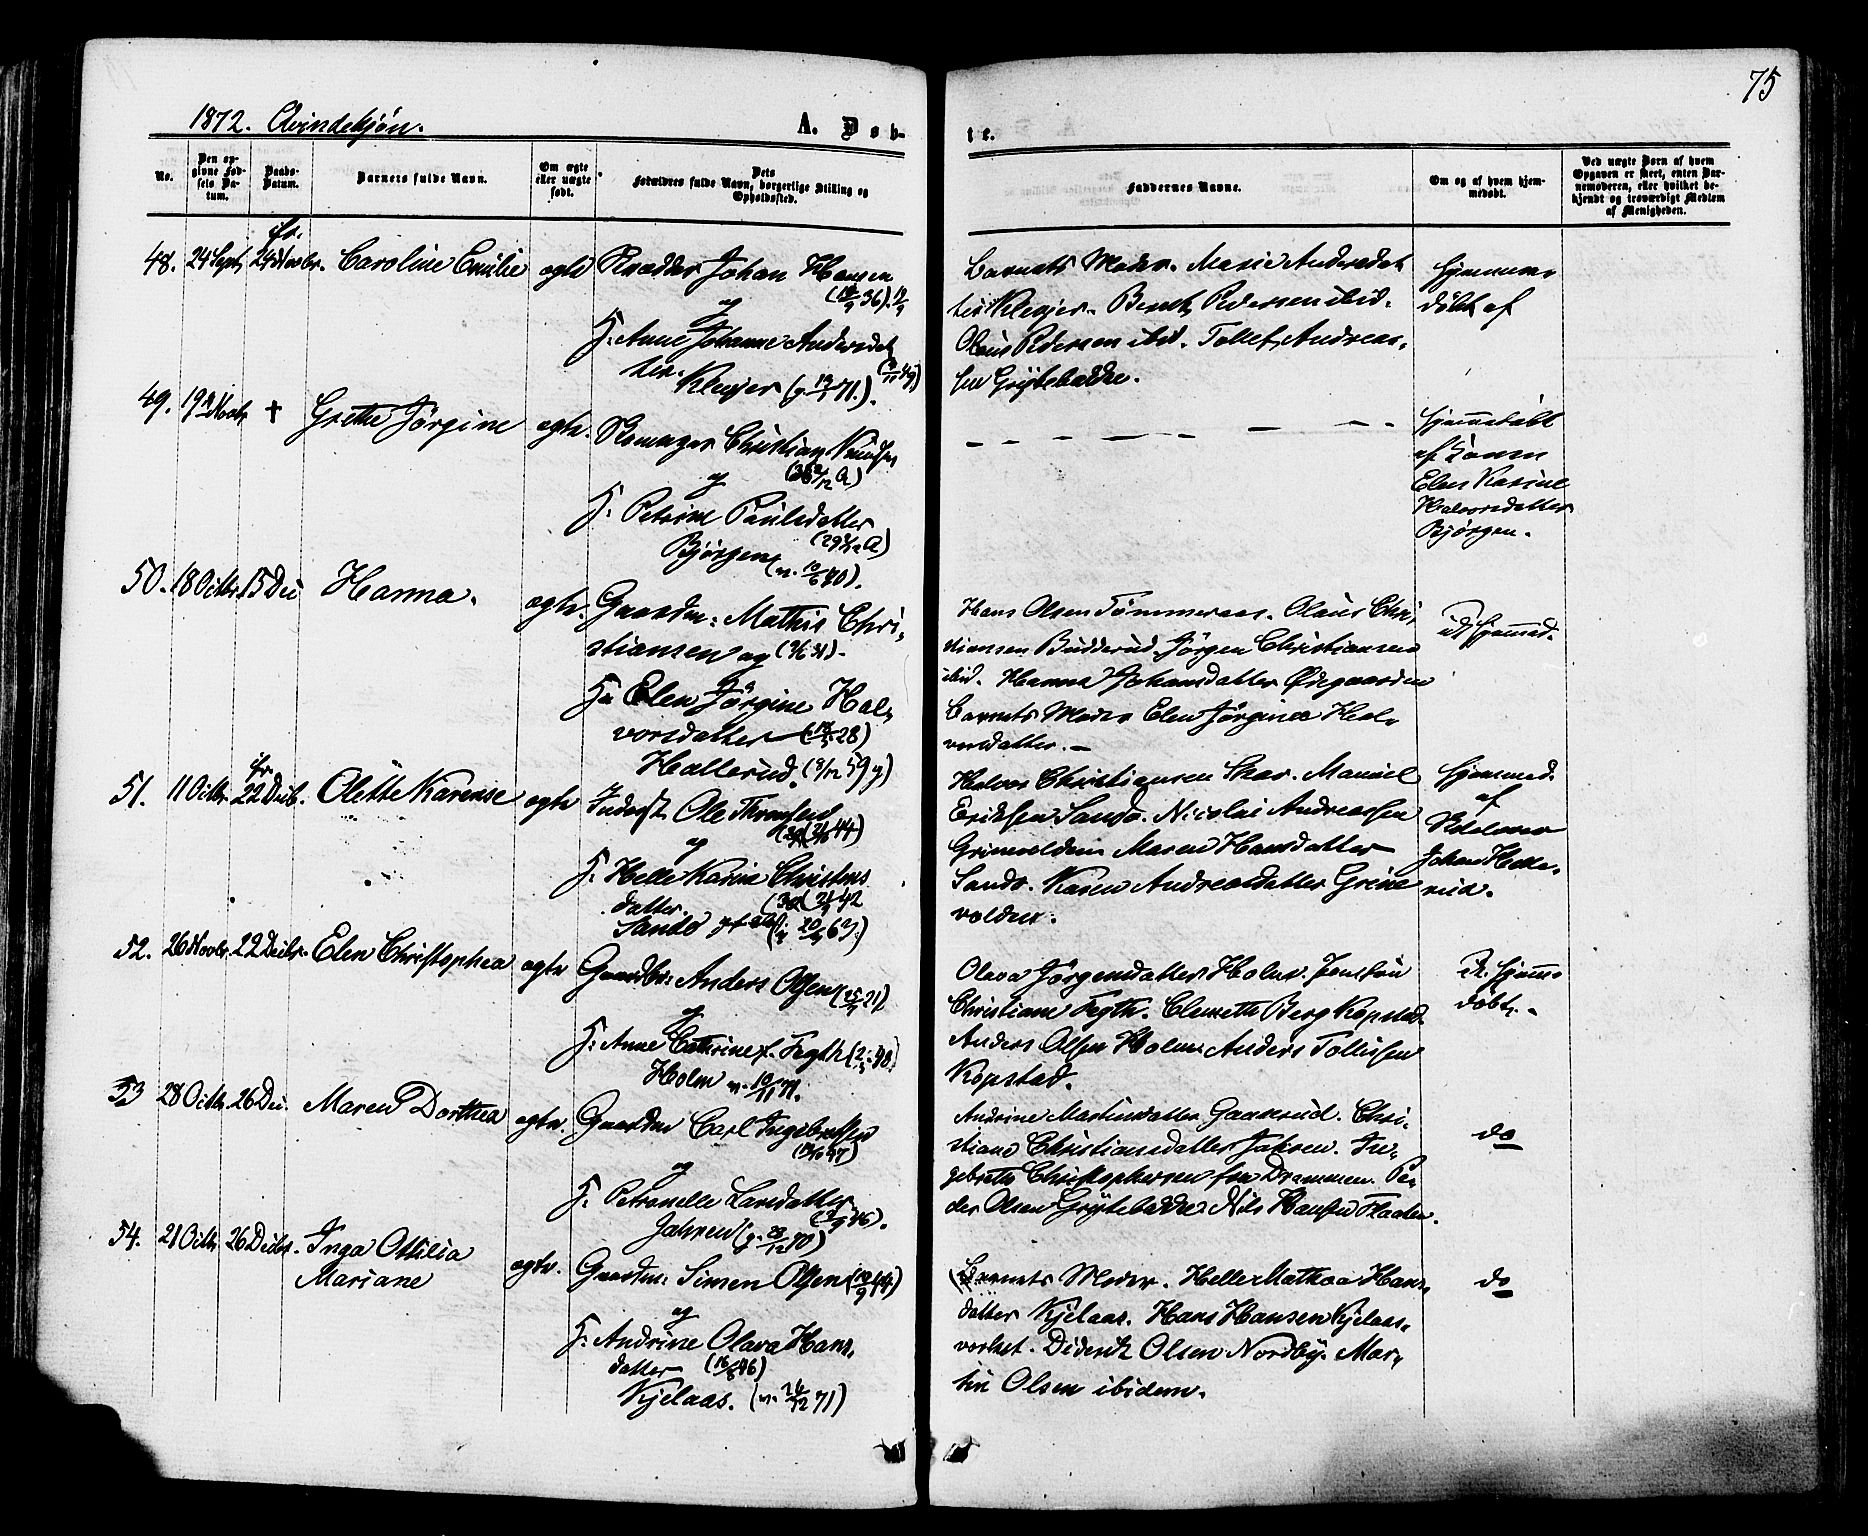 75
1872. Qvindekjøn.
A. Døb-
te.
No.
Den opgivne Fødsels Datum.
Daabs-Datum.
Barnets fulde Navn.
Om ægte eller uægte født.
Dets Forældres fulde Navn, borgerlige Stilling og Opholdssted.
Faddernes Navne.
Om og af hvem hjemmedøbt.
Ved uægte Børn af hvem Opgaven er skeet, enten Barnemoderen, eller hvilket bekjendt og troværdigt Medlem af Menigheden.
48. 24 Sept. fr. 24 Novbr. Caroline Emilie ægte
Johan Hansen
og
F. Anne Johanne Andersdat
ter.
Klevjer (g. 19/1 71.).
Barnets Moder. Marie Andersdat
ter Klevjer. Bernt Pedersen ibid.
Olaus Pedersen ibid. Tollef Andreas,
sen Grytebakke.
Hjemme
døbt af
49. 19 Novbr. + Grethe Jørgine ægte.
Skomager Christian Knudsen
og
F. Petrine Paulsdatter
Bjørgen
Hjemmedøbt
af Konen
Elen Karine
Halvorsdatter
Bjørgen.
50. 18 Octbr. 15 Dec Hanna. ægte.
Gaardm: Mathis Chri,
stiansen og
F. Elen Jørgine Hal,
vorsdatter
Hallerud.
Hans Olsen Tømmeraas. Olaus Chri,
stiansen Budderud. Jørgen Christiansen
ibid. Hanna Johansdatter Ødegaarden
Barnets Moder Elen Jørgine Hal,
vorsdatter. —
ik Hjemmed.
51. 11 Octbr. fr. 22 Decb. Olette Karense ægte
Inderst Ole Thronsen
og
F. Helle Karine Christens
datter.
Sando
Halvor Christiansen Skar. Manuel
Eriksen Sando. Nicolai Andreassen
Grinevolden Maren Hansdatter
Sando. Karen Andreasdatter Grine
volden.
Hjemmed.
af
Johan Halle,
rud.
52. 26 Novbr. 22 Decbr. Elen Christophea ægte
Gaardbr: Anders Olsen
og
F. Anne Cathrine f. Fegth
Holm
Olava Jørgensdatter Holm. Jomfru
Christiane Fegth. Clemeth Berg Kopstad.
Anders Olsen Holm. Anders Tollefsen
Kopstad.
Ik. Hjemme
døbt.
53 28 Octbr. 26 Dec. Maren Dorthea ægte.
Gaardm Carl Ingebretsen
og
F. Petronelle Larsdatter
Jahren (g. 28/12 70)
Andrine Martinsdatter Gaaserud. Chri,
stiane Christiansdatter Jahren. In,
gebreth Christophersen fra Drammen. Pe,
der Olsen Grytebakke. Nils Hansen Flaaten.
do
54. 21 Octbr. 26 Decbr. Inga Ottilia
Mariane
ægte.
Gaardm: Simen Olsen
og
F. Andrine Olava Hans,
datter (16/8 46)
Kjelaas. (v. 26/12 71)
Barnets Moder. Helle Mathea Hans,
datter Kjelaas. Hans Hansen Kjelaas,
verket. Diderik Olsen Nordby. Mar,
tin Olsen ibidem.
do